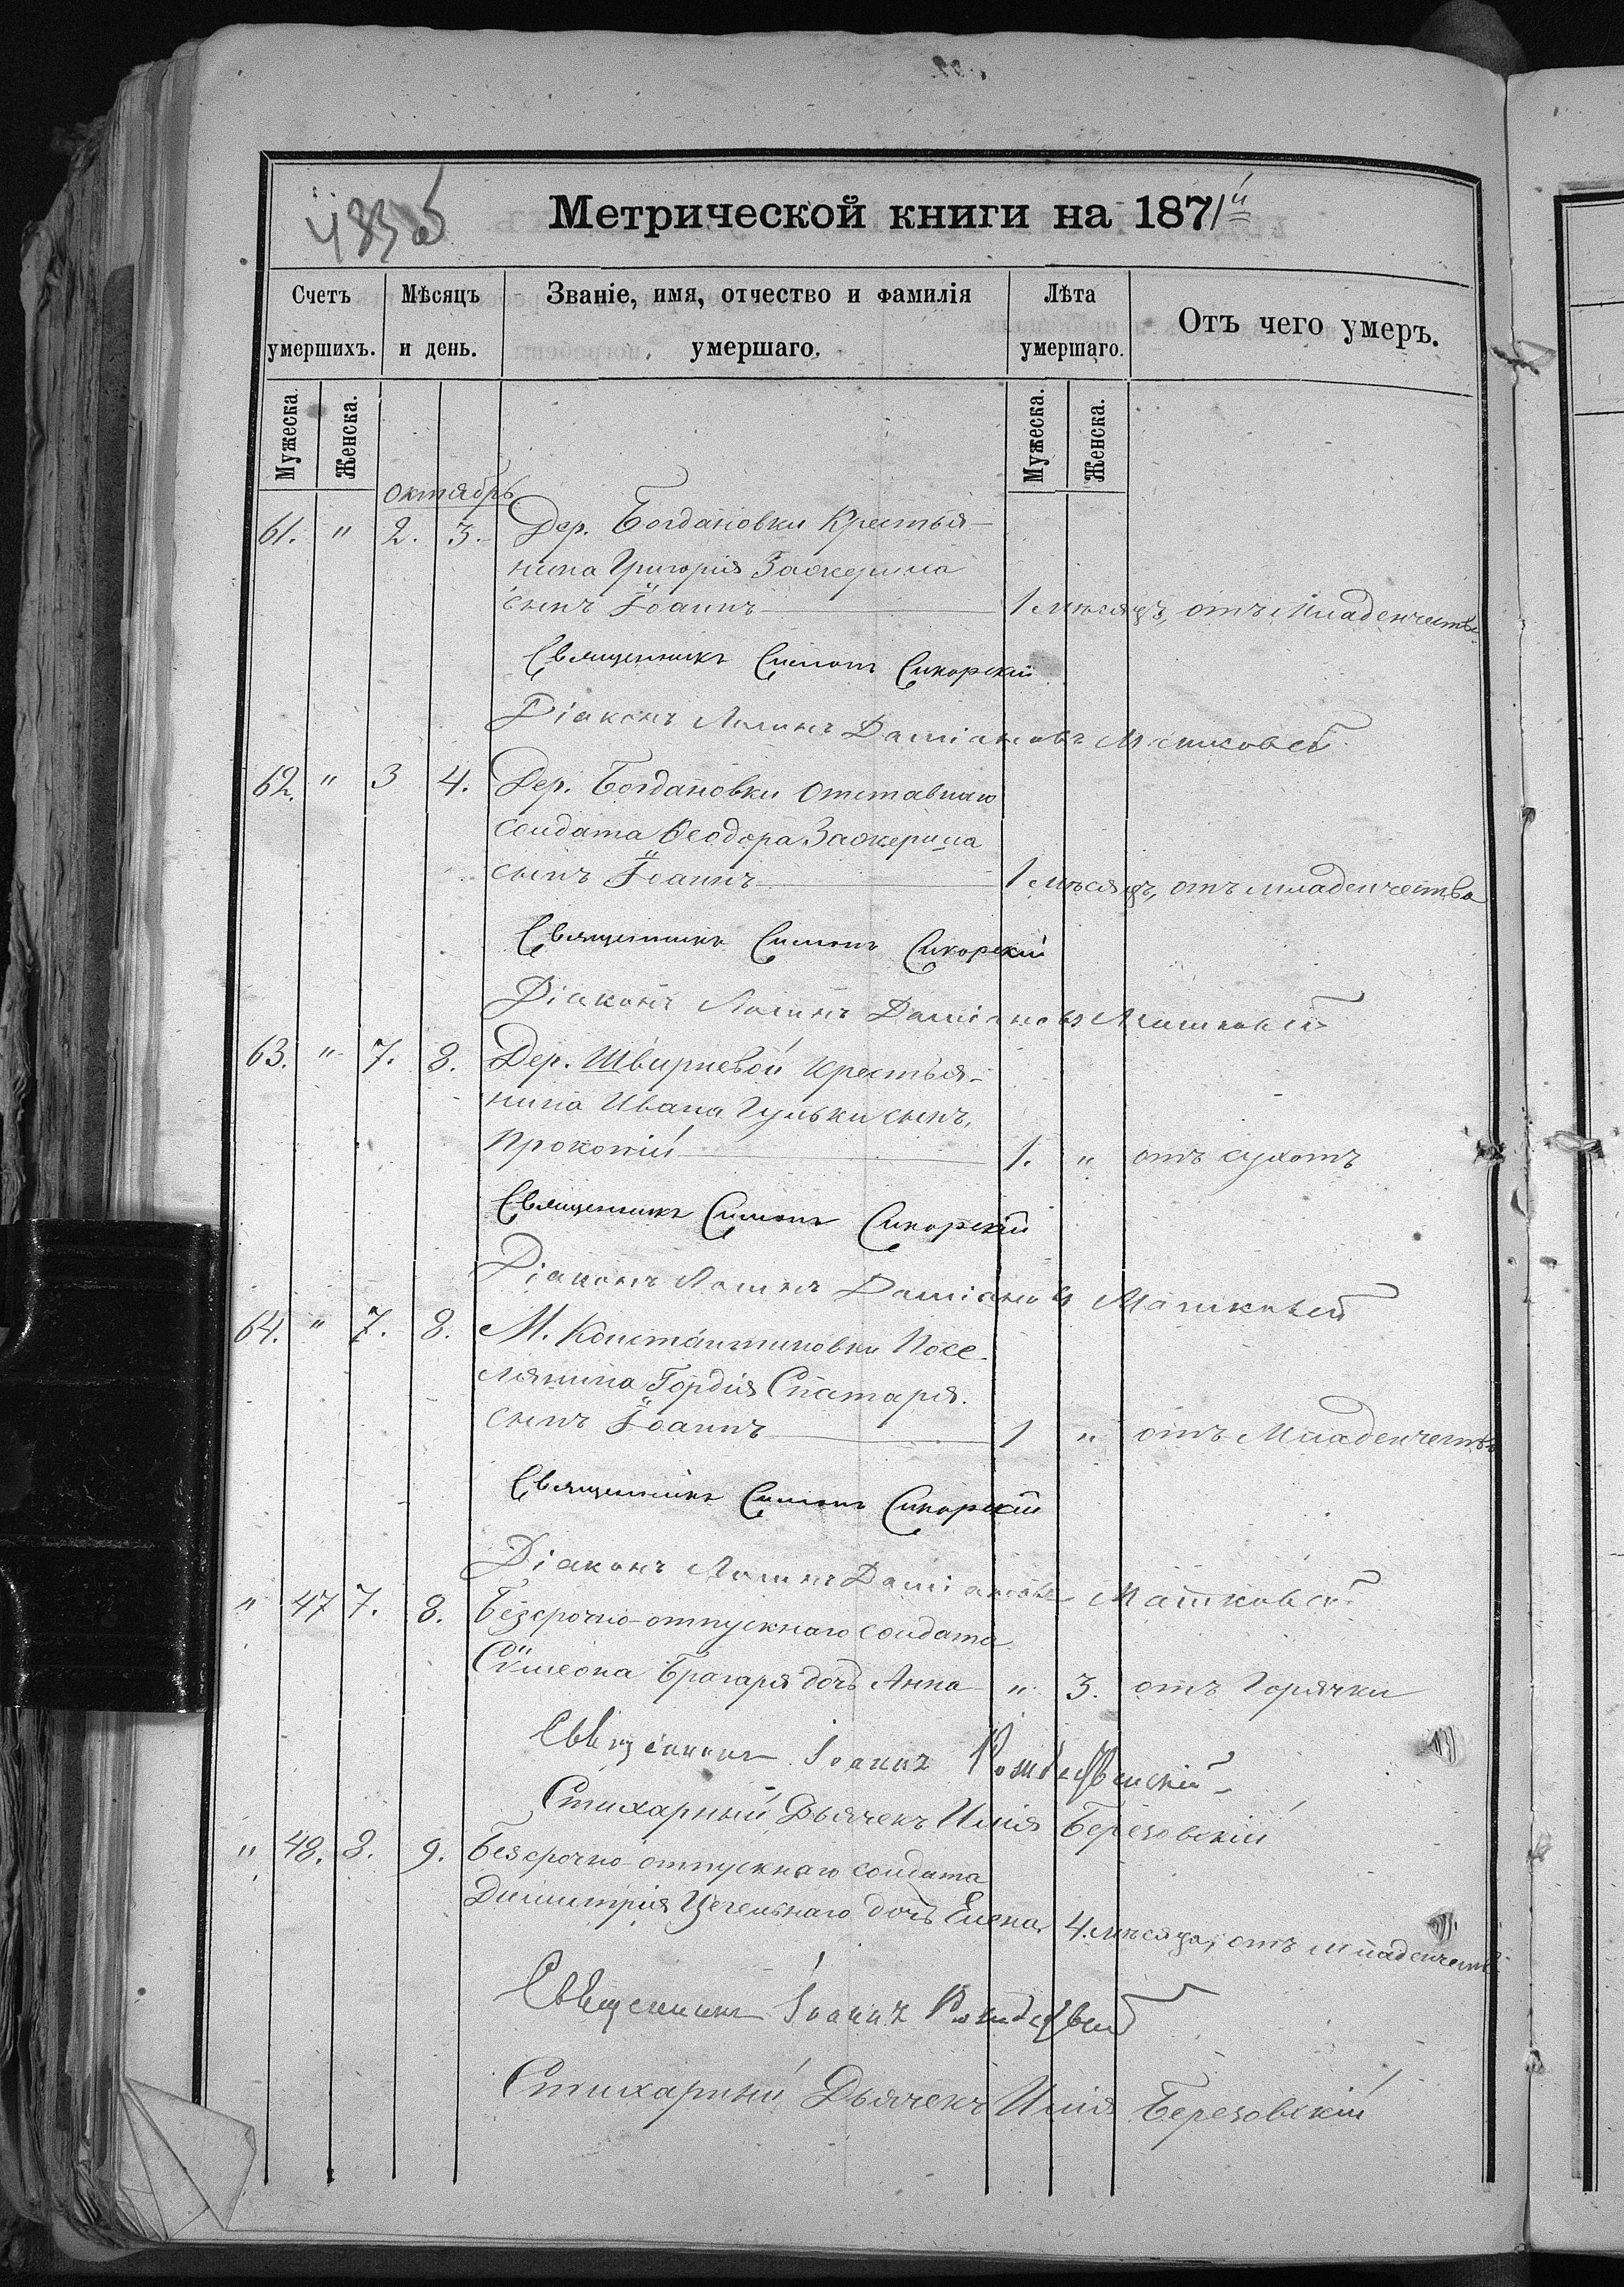 483 об
Метрической книги на 1871й
Счетъ умершихъ. Мѣсяцъ и день. Званіе, имя, отчество и фамилія умершаго. Лѣта умершаго. Отъ чего умеръ.
Мужеска. Женска. Мужеска. Женска.
Октябрь
61. " 2. 3. Дер. Богдановки Крестья-
нина Григорія Заожерина
сынъ Іоаннъ 1 мѣсяцъ, отъ младенчества
Священникъ Симонъ Сикорскій
Діаконъ Логинъ Даміановъ
62. " 3 4. Дер. Богдановки Отставнаго
солдата Ѳеодора Заожерина
сынъ Іоаннъ 1 мѣсяцъ, отъ младенчества
Священникъ Симонъ Сикорскій
Діаконъ Логинъ Даміановъ
63. " 7. 8. Дер. Швырневой Крестья-
нина Ивана Гульки сынъ,
Прокопій 1. " отъ сухотъ
Священникъ Симонъ Сикорскій
Діаконъ Логинъ Даміановъ
64. " 7. 8. М. Константиновки Посе-
лянина Гордія Спатаря.
сынъ Іоаннъ 1 " отъ Младенчества
Священникъ Симонъ Сикорскій
Діаконъ Логинъ Даміановъ Матковскій
" 47 7. 8. Безсрочно-отпускнаго солдата
Сѵмеона Брагаря дочь Анна " 3. отъ Горячки
Священникъ Іоаннъ Рождественскій
Стихарный Дьячекъ Илія Березовскій
" 48. 8. 9. Безсрочно-отпускнаго солдата
Димитрія Цегельнаго дочь Елена, 4. мѣсяца, отъ младенчества
Священникъ Іоаннъ Рождественскій
Стихарный Дьячекъ Илія Березовскій